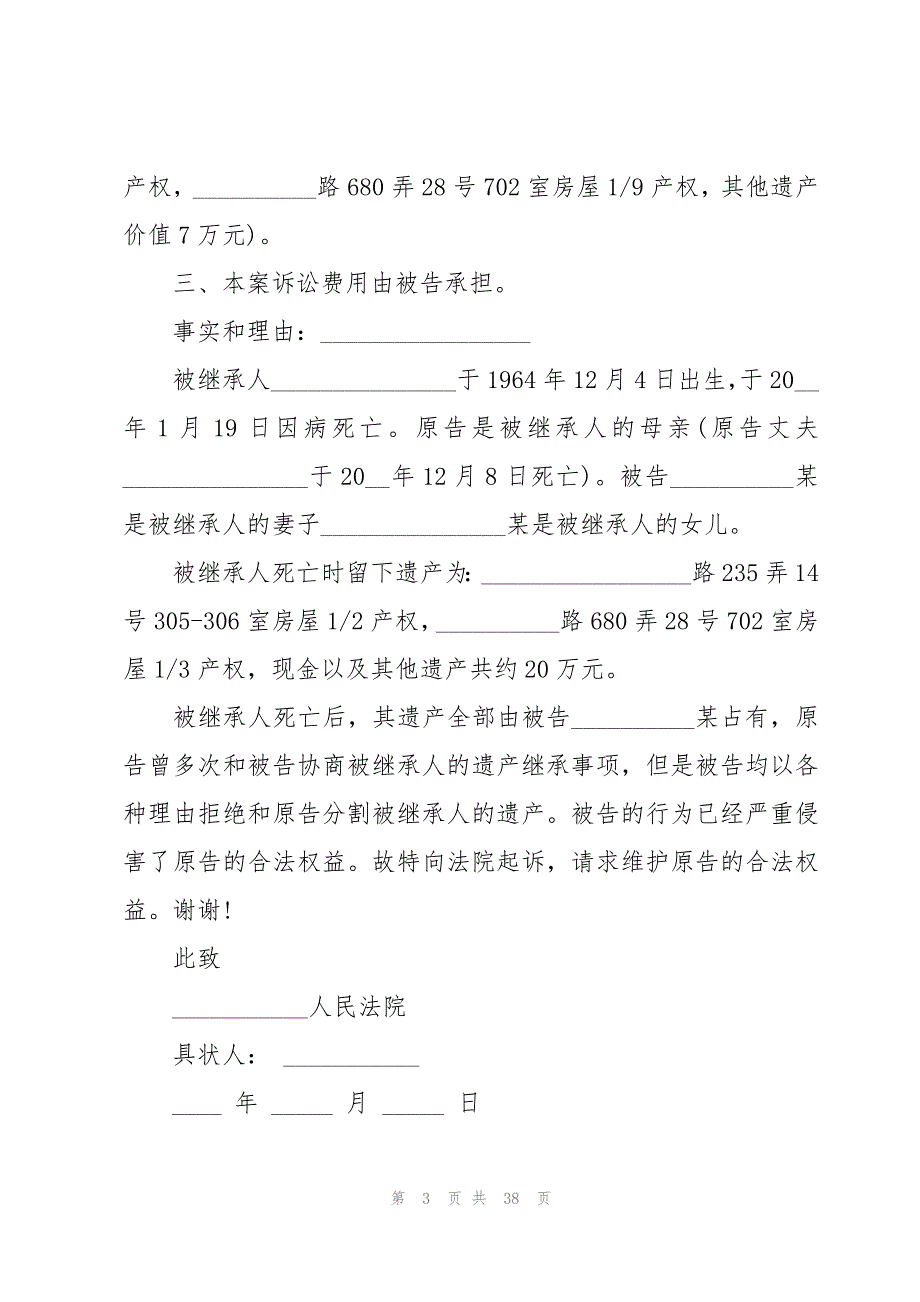 产权，__________路 680 弄 28 号 702 室房屋 1/9 产权，其他遗产
价值 7 万元)。
三、本案诉讼费用由被告承担。
事实和理由：_________________
被继承人_______________于 1964 年 12 月 4 日出生，于 20__
年 1 月 19 日因病死亡。原告是被继承人的母亲(原告丈夫
_______________于 20__年 12 月 8 日死亡)。被告__________某
是被继承人的妻子_______________某是被继承人的女儿。
被继承人死亡时留下遗产为：_________________路 235 弄 14
号 305-306 室房屋 1/2 产权，__________路 680 弄 28 号 702 室房
屋 1/3 产权，现金以及其他遗产共约 20 万元。
被继承人死亡后，其遗产全部由被告__________某占有，原
告曾多次和被告协商被继承人的遗产继承事项，但是被告均以各
种理由拒绝和原告分割被继承人的遗产。被告的行为已经严重侵
害了原告的合法权益。故特向法院起诉，请求维护原告的合法权
益。谢谢!
此致
___________人民法院
具状人： ___________
____ 年 _____ 月 _____ 日
第 3 页 共 38 页